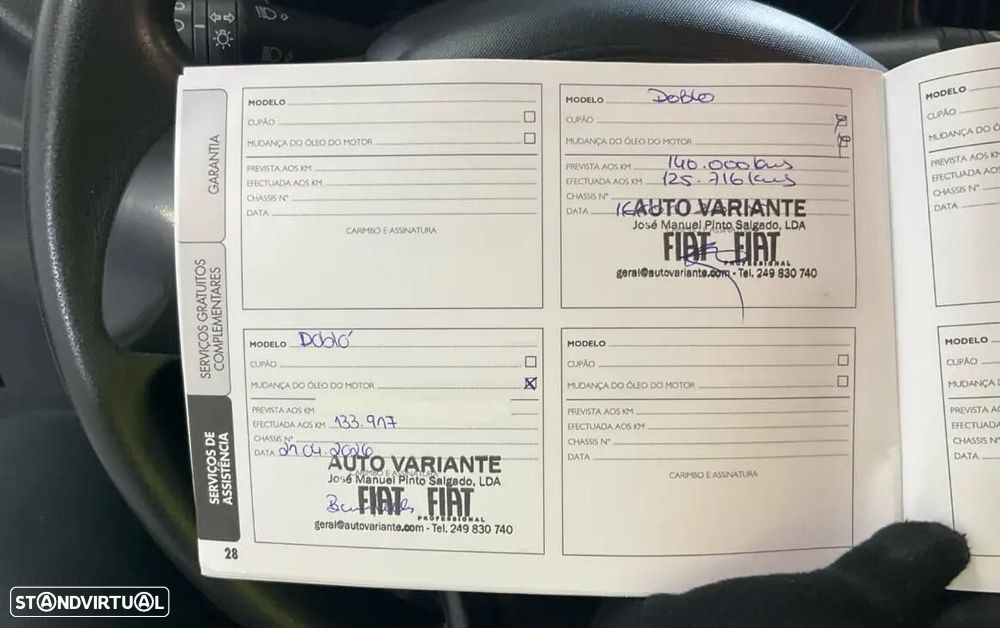 GARANTIA
SERVIÇOS GRATUITOS
COMPLEMENTARES
SERVIÇOS DE
ASSISTÊNCIA
MODELO
CUPÃO
MUDANÇA DO ÓLEO DO MOTOR
PREVISTA AOS KM
EFECTUADA AOS KM
CHASSIS Nº
DATA
CARIMBO E ASSINATURA
MODELO Doblo
CUPÃO
MUDANÇA DO ÓLEO DO MOTOR
PREVISTA AOS KM 140.000 kms
EFECTUADA AOS KM 125.716 kms
CHASSIS Nº
DATA
AUTO VARIANTE
José Manuel Pinto Salgado, LDA
FIAT FIAT
PROFESSIONAL
geral@autovariante.com - Tel. 249 830 740
MODELO Dobló
CUPÃO
MUDANÇA DO ÓLEO DO MOTOR X
PREVISTA AOS KM
EFECTUADA AOS KM 133.917
CHASSIS Nº
DATA 21.04.2026
CARIMBO E ASSINATURA
AUTO VARIANTE
José Manuel Pinto Salgado, LDA
FIAT FIAT
PROFESSIONAL
geral@autovariante.com - Tel. 249 830 740
MODELO
CUPÃO
MUDANÇA DO ÓLEO DO MOTOR
PREVISTA AOS KM
EFECTUADA AOS KM
CHASSIS Nº
DATA
CARIMBO E ASSINATURA
28
MODELO
CUPÃO
MUDANÇA DO Ó
PREVISTA AOS KM
EFECTUADA AOS
CHASSIS Nº
DATA
MODELO
CUPÃO
MUDANÇA
PREVISTA A
EFECTUADA
CHASSIS N
DATA
STANDVIRTUAL